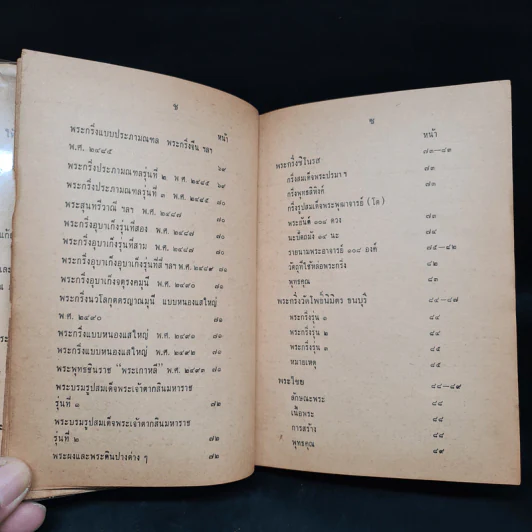 ช
หน้า
พระกริ่งแบบประภามณฑล พระกริ่งจีน ฯลฯ
พ.ศ. ๒๔๘๕ ๖๙
พระกริ่งประภามณฑลรุ่นที่ ๒ พ.ศ. ๒๔๘๕ ๖๙
พระกริ่งประภามณฑลรุ่นที่ ๓ พ.ศ. ๒๔๘๕ ๗๐
พระสุนทรีวาณี ฯลฯ พ.ศ. ๒๔๘๗ ๗๐
พระกริ่งอุบาเก็งรุ่นที่สอง พ.ศ. ๒๔๘๗ ๗๐
พระกริ่งอุบาเก็งรุ่นที่สาม พ.ศ. ๒๔๘๗ ๗๐
พระกริ่งอุบาเก็งอุบาเก็งรุ่นที่สี่ ฯลฯ พ.ศ. ๒๔๘๙ ๗๑
พระกริ่งอุบาเก็งจตุรงคมุนี ๗๑
พระกริ่งนวโลกุตตรญาณมุนี แบบหนองแสใหญ่
พ.ศ. ๒๔๙๐ ๗๑
พระกริ่งแบบหนองแสใหญ่ พ.ศ. ๒๔๙๑ ๗๑
พระกริ่งแบบหนองแสใหญ่ พ.ศ. ๒๔๙๒ ๗๑
พระพุทธชินราช "พระเกาหลี" พ.ศ. ๒๔๙๓ ๗๑
พระบรมรูปสมเด็จพระเจ้าตากสินมหาราช
รุ่นที่ ๑ ๗๒
พระบรมรูปสมเด็จพระเจ้าตากสินมหาราช
รุ่นที่ ๒ ๗๒
พระผงและพระดินปางต่าง ๆ ๗๒
หน้า
พระกริ่งชิโนรส ๗๓—๘๓
กริ่งสมเด็จพระปรมา ฯ ๗๓
กริ่งพุทธสิหิงค์ ๗๓
กริ่งรูปสมเด็จพระพุฒาจารย์ (โต)
พระยันต์ ๑๐๘ ดวง ๗๓
นะปัถมัง ๑๔ นะ ๗๔
รายนามพระอาจารย์ ๑๐๘ องค์ ๗๕—๘๒
วัตถุที่ใช้หล่อพระกริ่ง ๘๒
พุทธคุณ ๘๓
พระกริ่งวัดโพธิ์นิมิตร ธนบุรี ๘๔—๘๗
พระกริ่งรุ่น ๑ ๘๔
พระกริ่งรุ่น ๒ ๘๔
พระกริ่งรุ่น ๓ ๘๕
หมายเหตุ ๘๕
พระไชย ๘๘—๘๙
ลักษณะพระ ๘๘
เนื้อพระ ๘๘
การสร้าง ๘๘
พุทธคุณ ๘๙